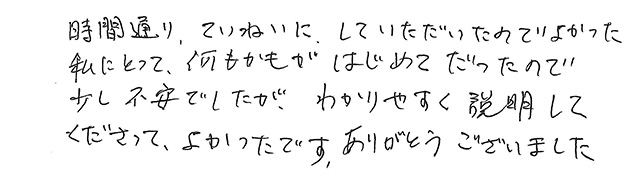 時間通り、ていねいに、していただいたのでよかった
私にとって、何もかもが はじめて だったので
少し 不安でしたが、 わかりやすく 説明して
くださって、よかったです。ありがとう ございました